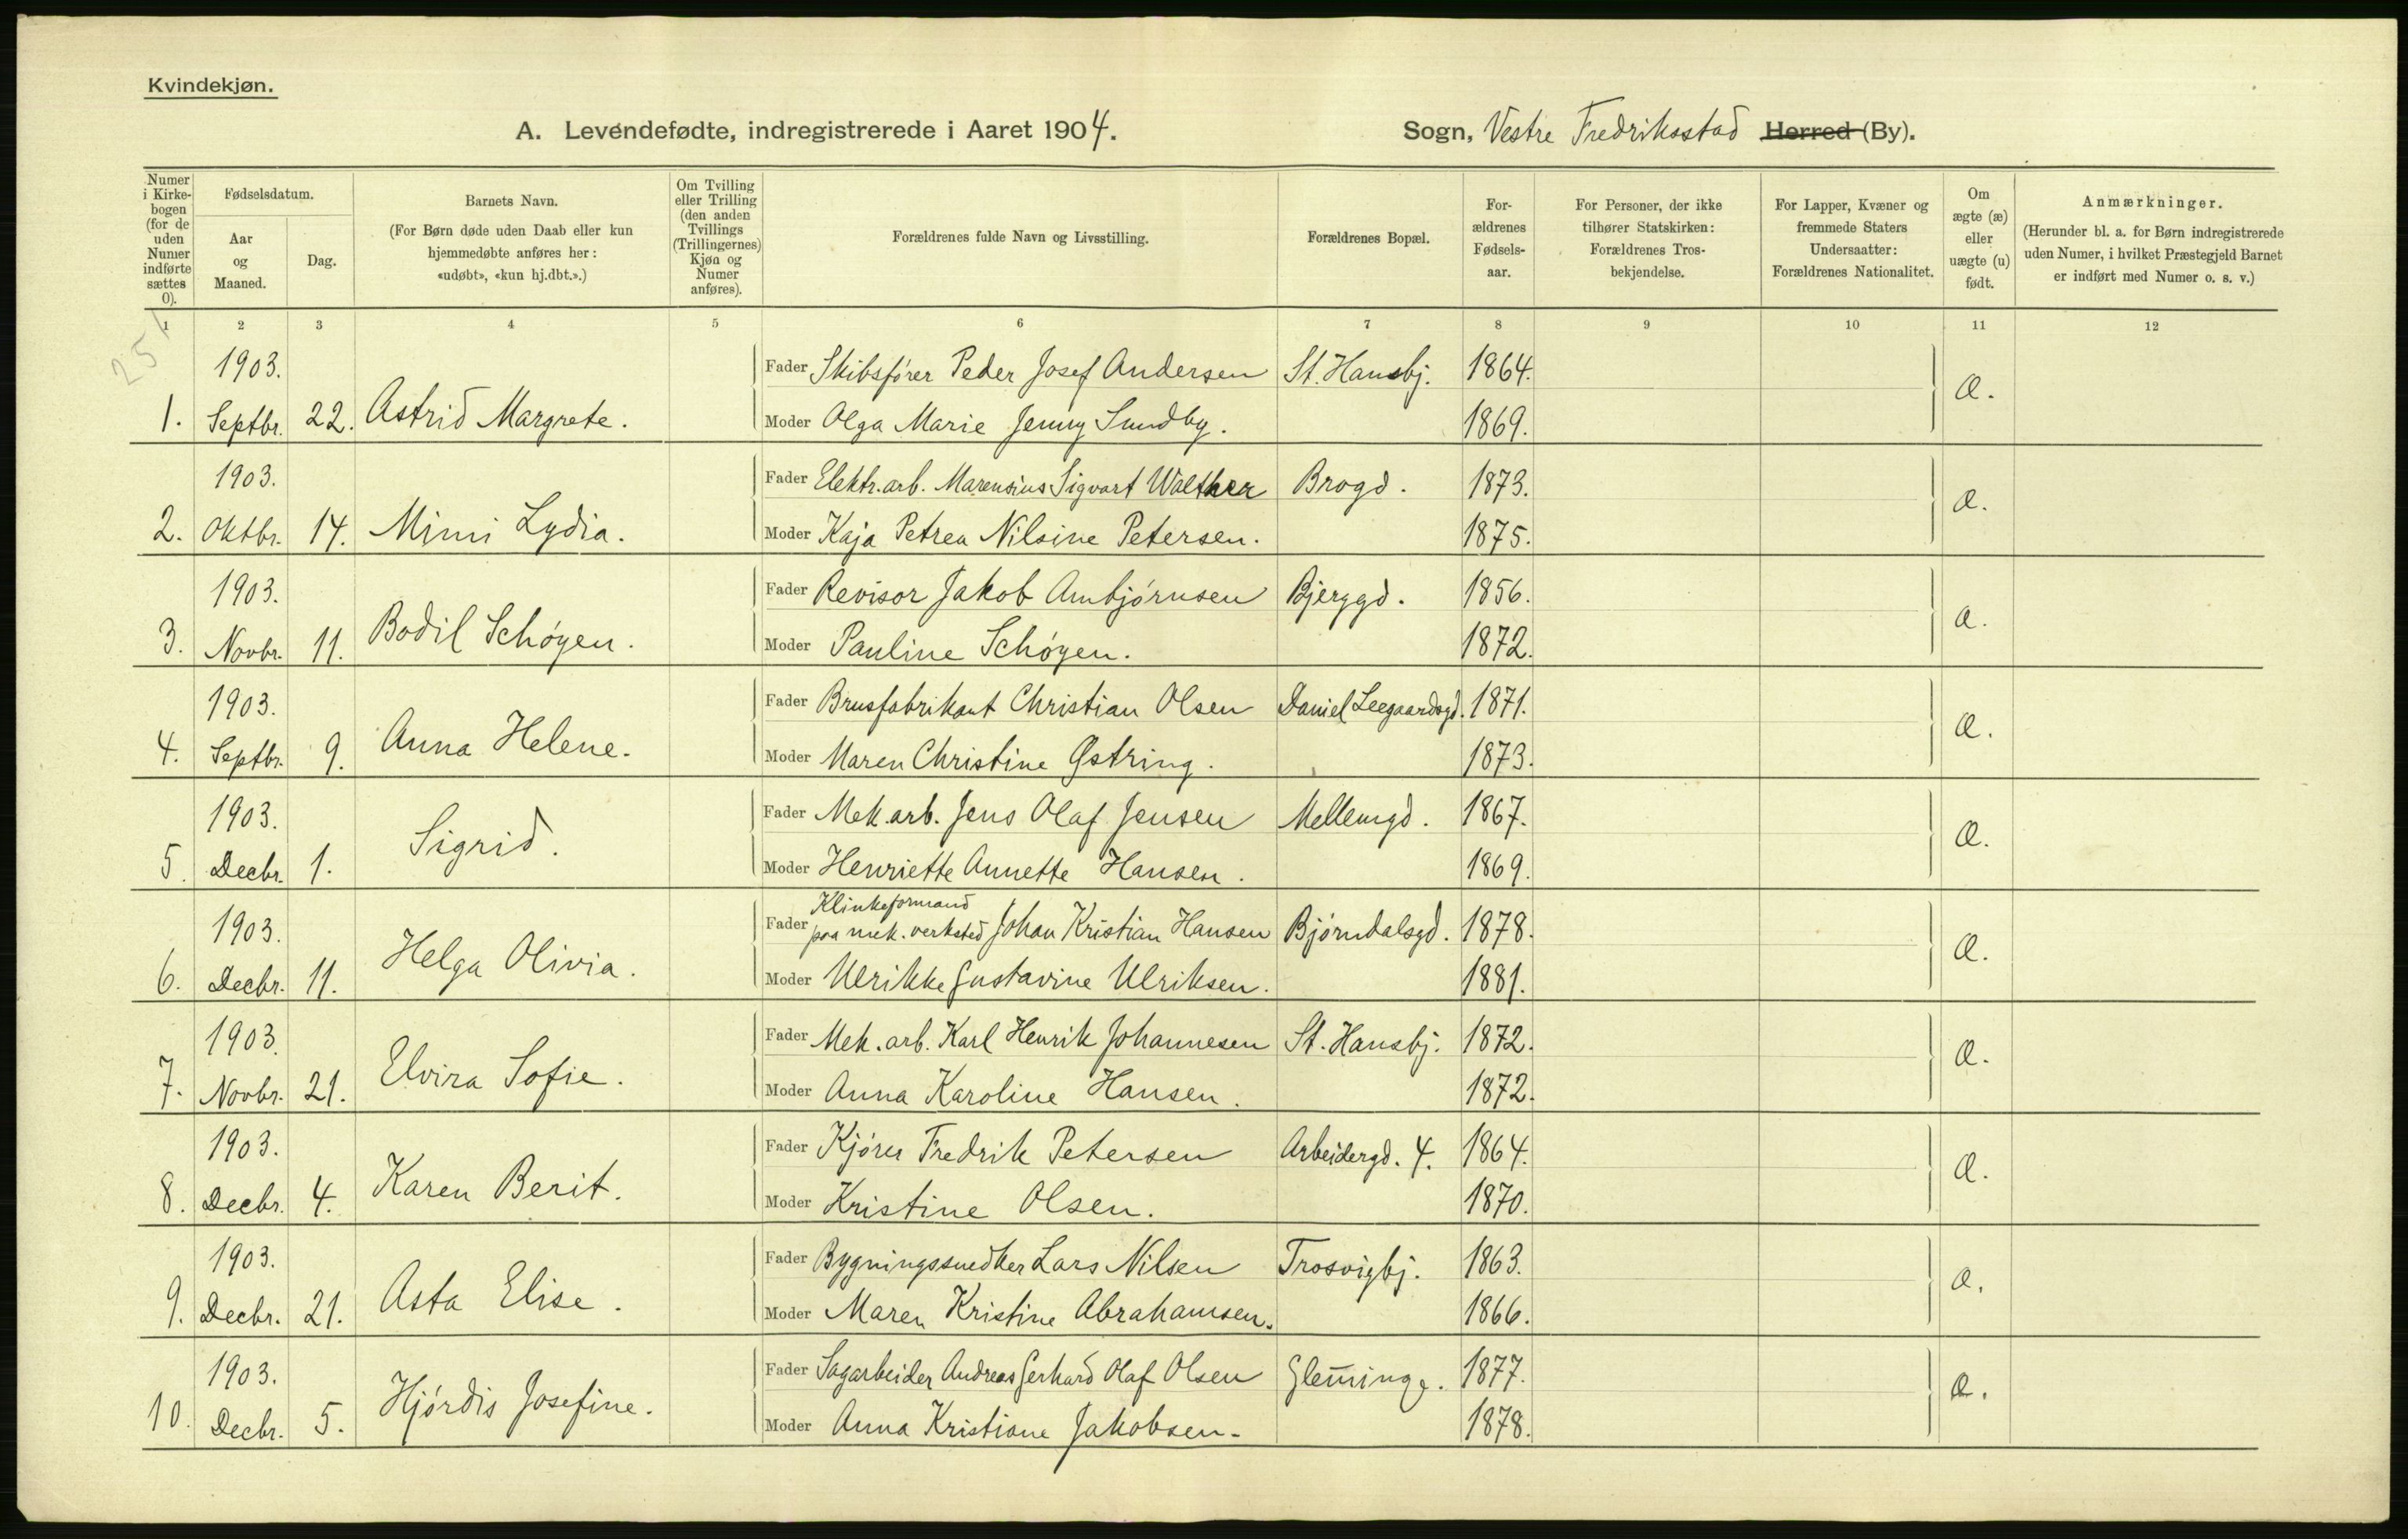 Kvindekjøn.
A. Levendefødte, indregistrerede i Aaret 1904. Sogn, Vestre Fredriksstad Herred (By).
Numer i Kirkebogen (for de uden Numer indførte sættes 0).
Fødselsdatum.
Aar og Maaned.
Dag.
Barnets Navn.
(For Børn døde uden Daab eller kun hjemmedøbte anføres her: «udøbt», «kun hj.dbt.».)
Om Tvilling eller Trilling (den anden Tvillings (Trillingernes) Kjøn og Numer anføres).
Forældrenes fulde Navn og Livsstilling.
Forældrenes Bopæl.
Forældrenes Fødselsaar.
For Personer, der ikke tilhører Statskirken: Forældrenes Trosbekjendelse.
For Lapper, Kvæner og fremmede Staters Undersaatter: Forældrenes Nationalitet.
Om ægte (æ) eller uægte (u) født.
Anmærkninger.
(Herunder bl. a. for Børn indregistrerede uden Numer, i hvilket Præstegjeld Barnet er indført med Numer o. s. v.)
1 2 3 4 5 6 7 8 9 10 11 12
251
1903. Fader Skibsfører Peder Josef Andersen St. Hansbj. 1864. Æ.
1. Septbr. 22. Astrid Margrete. Moder Olga Marie Jenny Sundby. 1869.
1903. Fader Elektr.arb. Marensius Sigvart Walther Brogd. 1873. Æ.
2. Oktbr. 14. Mimi Lydia. Moder Kaja Petrea Nilsine Petersen. 1875.
1903. Fader Revisor Jakob Ambjørnsen Bjerggd. 1856. Æ.
3. Novbr. 11. Bodil Schøyen. Moder Pauline Schøyen. 1872.
1903. Fader Brusfabrikant Christian Olsen Daniel Leegaardsgd. 1871. Æ.
4. Septbr. 9. Anna Helene. Moder Maren Christine Østring. 1873.
1903. Fader Mek. arb. Jens Olaf Jensen Mellemgd. 1867. Æ.
5. Decbr. 1. Sigrid. Moder Henriette Annette Hansen. 1869.
Klinkeformand
1903. Fader paa mek. verksted Johan Kristian Hansen Bjørndalsgd. 1878. Æ.
6. Decbr. 11. Helga Olivia. Moder Ulrikke Gustavine Ulriksen. 1881.
1903. Fader Mek. arb. Karl Henrik Johannesen St. Hansbj. 1872. Æ.
7. Novbr. 21. Elvira Sofie. Moder Anna Karoline Hansen. 1872.
1903. Fader Kjører Fredrik Petersen Arbeidergd. 4. 1864. Æ.
8. Decbr. 4. Karen Berit. Moder Kristine Olsen. 1870.
1903. Fader Bygningssnedker Lars Nilsen Trosvigbj. 1863. Æ.
9. Decbr. 21. Asta Elise. Moder Maren Kristine Abrahamsen. 1866.
1903. Fader Sagarbeider Andreas Gerhard Olaf Olsen Glem̅inge. 1877. Æ.
10. Decbr. 5. Hjørdis Josefine. Moder Anna Kristiane Jakobsen. 1878.